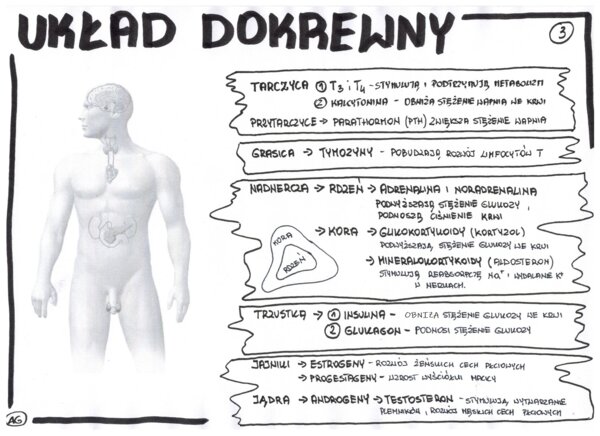 UKŁAD DOKREWNY
3
TARCZYCA ① T3 i T4 - STYMULUJĄ I PODTRZYMUJĄ METABOLIZM
② KALCYTONINA - OBNIŻA STĘŻENIE WAPNIA WE KRWI
PRZYTARCZYCE → PARATHORMON (PTH) ZWIĘKSZA STĘŻENIE WAPNIA
GRASICA → TYMOZYNY - POBUDZAJĄ ROZWÓJ LIMFOCYTÓW T
NADNERCZA → RDZEŃ → ADRENALINA I NORADRENALINA
PODWYŻSZAJĄ STĘŻENIE GLUKOZY,
PODNOSZĄ CIŚNIENIE KRWI
→ KORA → GLIKOKORTYKOIDY (KORTYZOL)
PODWYŻSZAJĄ STĘŻENIE GLUKOZY WE KRWI
→ MINERALOKORTYKOIDY (ALDOSTERON)
STYMULUJĄ REABSORPCJĘ Na+ I WYDALANIE K+
W NERKACH.
KORA
RDZEŃ
TRZUSTKA → ① INSULINA - OBNIŻA STĘŻENIE GLUKOZY WE KRWI
② GLUKAGON - PODNOSI STĘŻENIE GLUKOZY
JAJNIKI → ESTROGENY - ROZWÓJ ŻEŃSKICH CECH PŁCIOWYCH
→ PROGESTAGENY - WZROST WYŚCIÓŁKI MACICY
JĄDRA → ANDROGENY → TESTOSTERON - STYMULUJĄ WYTWARZANIE
PLEMNIKÓW, ROZWÓJ MĘSKICH CECH PŁCIOWYCH.
AG